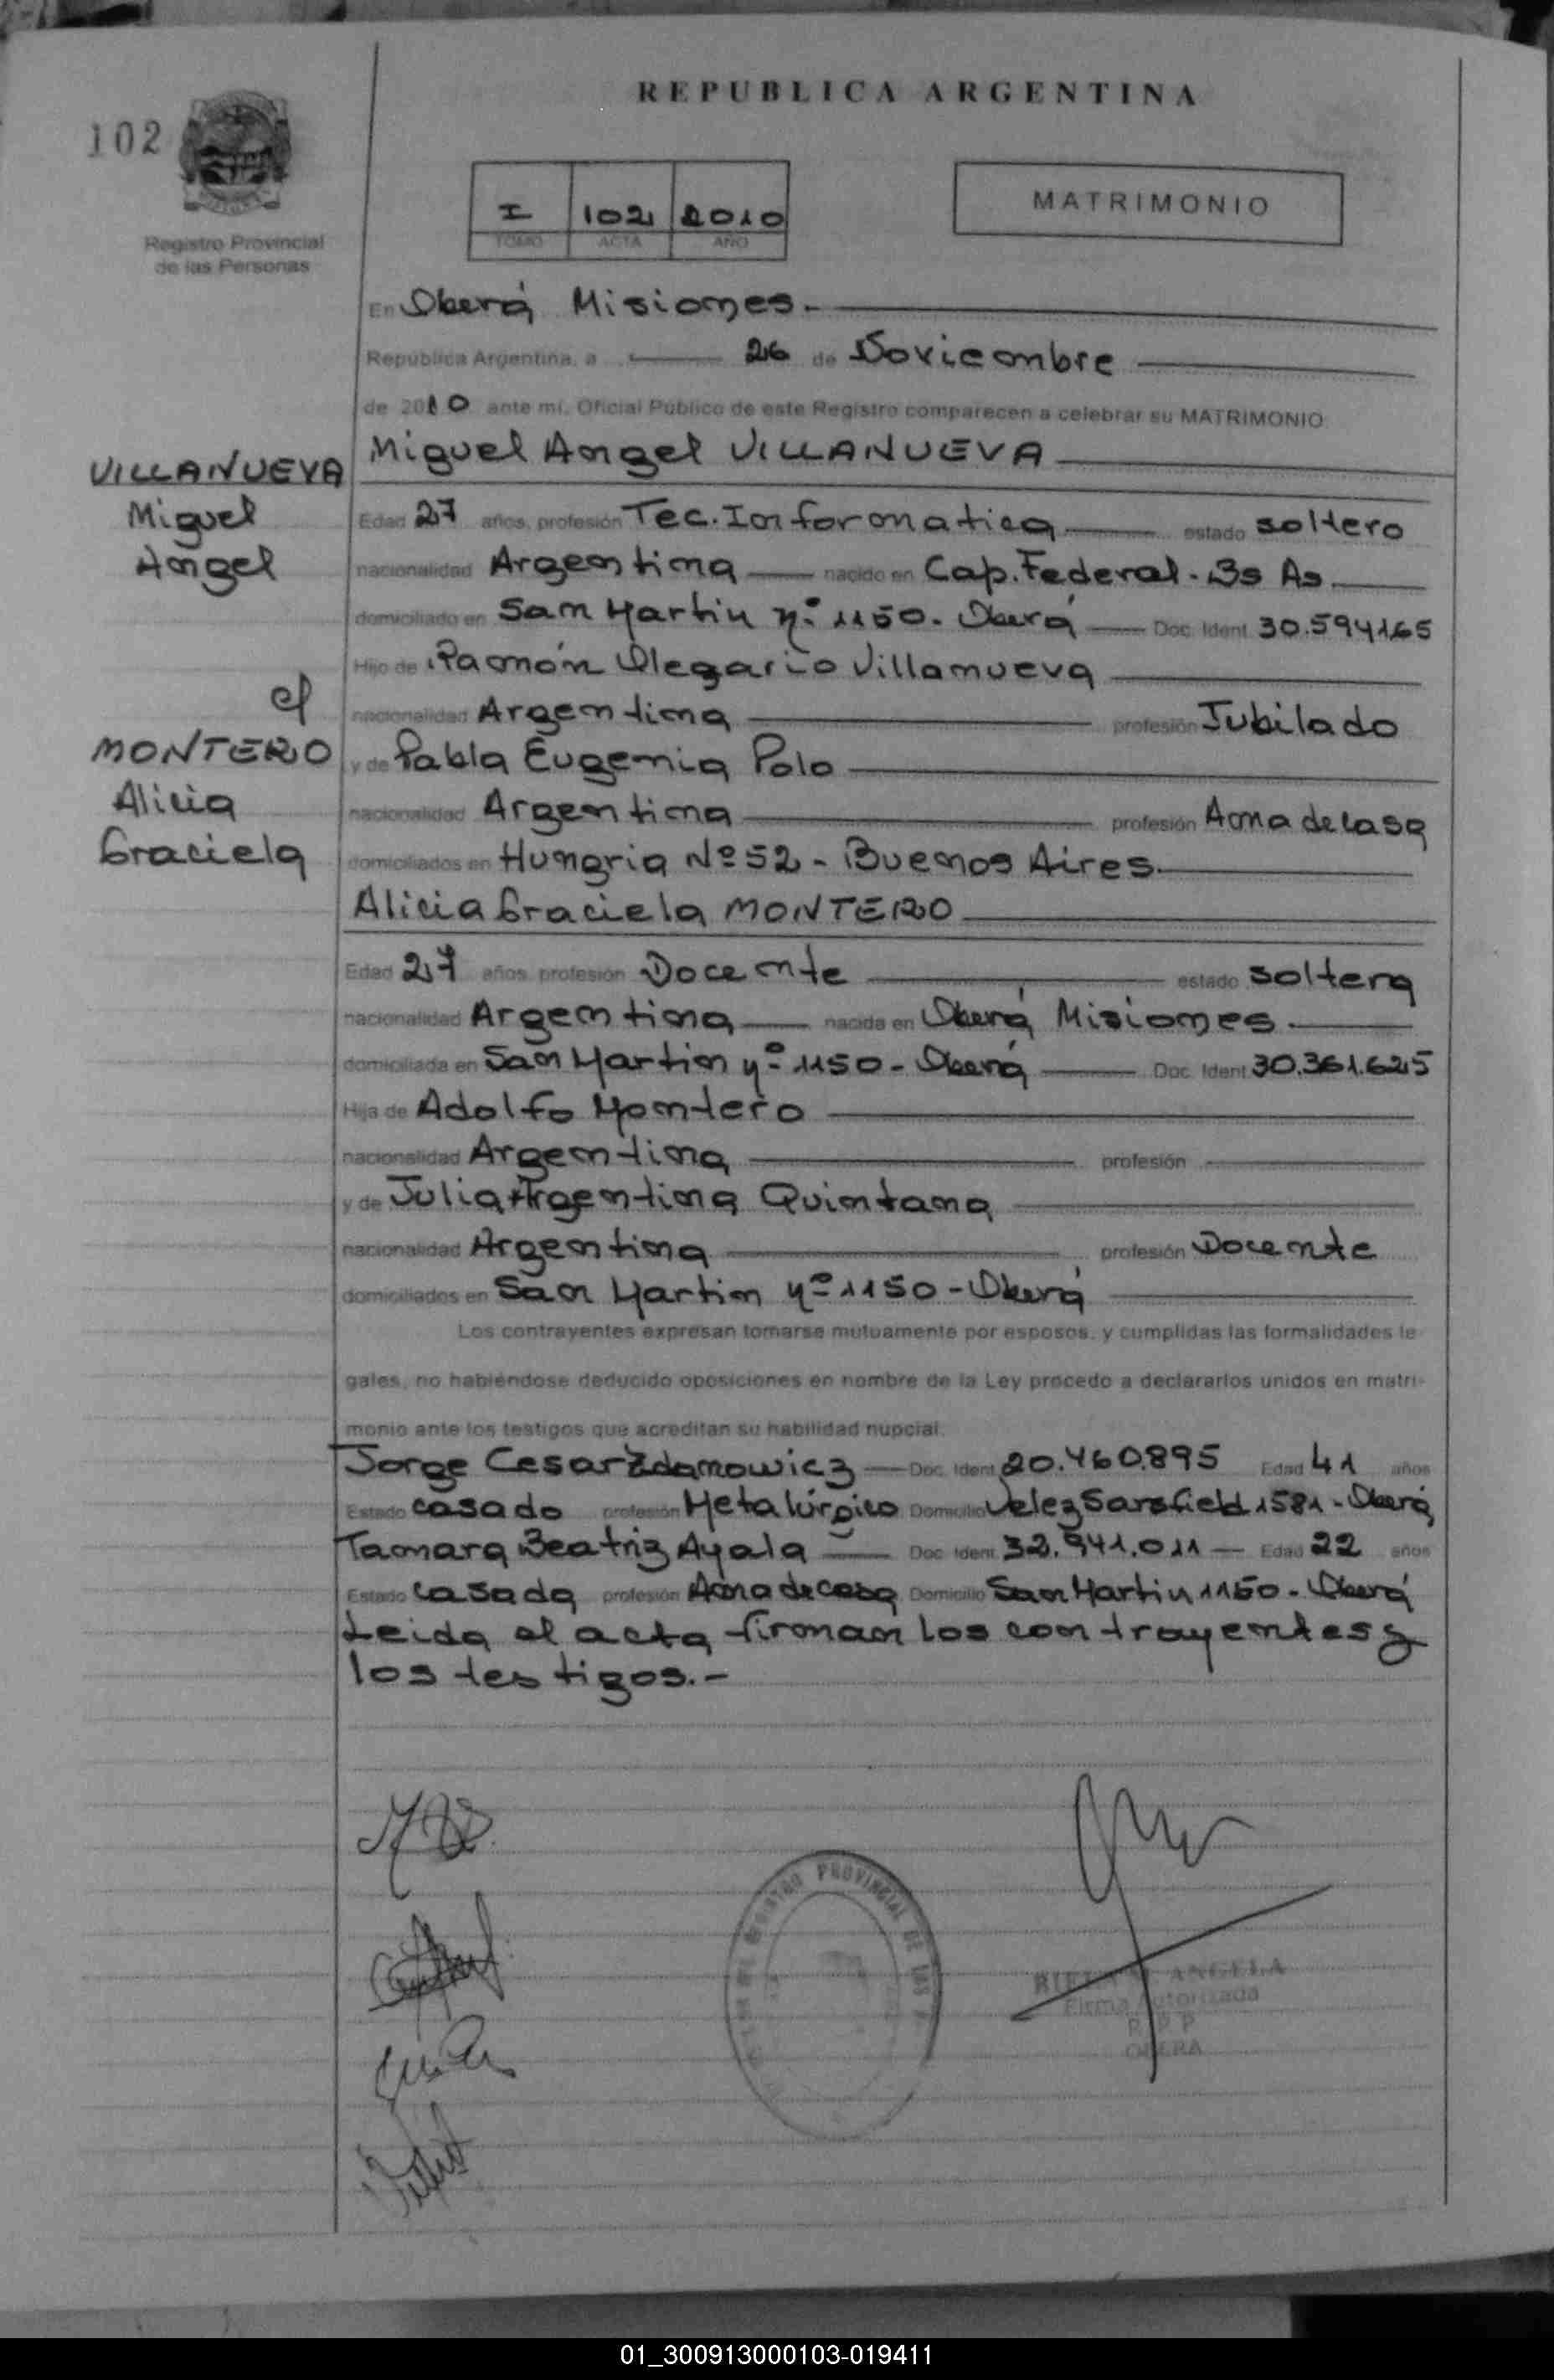 REPUBLICA ARGENTINA
102
I 102 2010
TOMO ACTA AÑO
MATRIMONIO
Registro Provincial
de las Personas
En Oberá Misiones.
República Argentina, a 26 de Noviembre
de 2010 ante mí, Oficial Público de este Registro comparecen a celebrar su MATRIMONIO
Miguel Angel VILLANUEVA
VILLANUEVA
Miguel
Angel
Edad 27 años, profesión Tec. Informatica estado soltero
nacionalidad Argentina nacido en Cap. Federal - Bs As.
domiciliado en San Martin Nº 1150. Oberá Doc. Ident. 30.594165
Hijo de Ramón Olegario Villanueva
c/
nacionalidad Argentina profesión Jubilado
MONTERO
Alicia
Graciela
y de Pabla Eugenia Polo
nacionalidad Argentina profesión Ama de casa
domiciliados en Hungria Nº 52 - Buenos Aires.
Alicia Graciela MONTERO
Edad 27 años, profesión Docente estado soltera
nacionalidad Argentina nacida en Oberá Misiones.
domiciliada en San Martin Nº 1150 - Oberá Doc. Ident. 30.361.625
Hija de Adolfo Montero
nacionalidad Argentina profesión
y de Julia Argentina Quintana
nacionalidad Argentina profesión Docente
domiciliados en San Martin Nº 1150 - Oberá
Los contrayentes expresan tomarse mutuamente por esposos, y cumplidas las formalidades le-
gales, no habiéndose deducido oposiciones en nombre de la Ley procedo a declararlos unidos en matri-
monio ante los testigos que acreditan su habilidad nupcial.
Jorge Cesar Zdanowicz Doc. Ident. 20.460.895 Edad 41 años
Estado casado profesión Metalúrgico Domicilio Velez Sarsfield 1581 - Oberá
Tamara Beatriz Ayala Doc. Ident. 32.941.011 Edad 22 años
Estado casada profesión Ama de casa Domicilio San Martin 1150 - Oberá
Leida el acta firman los contrayentes y
los testigos.-
REGISTRO PROVINCIAL DE LAS
ANGELA
Firma Autorizada
R P P
OBERA
01_300913000103-019411